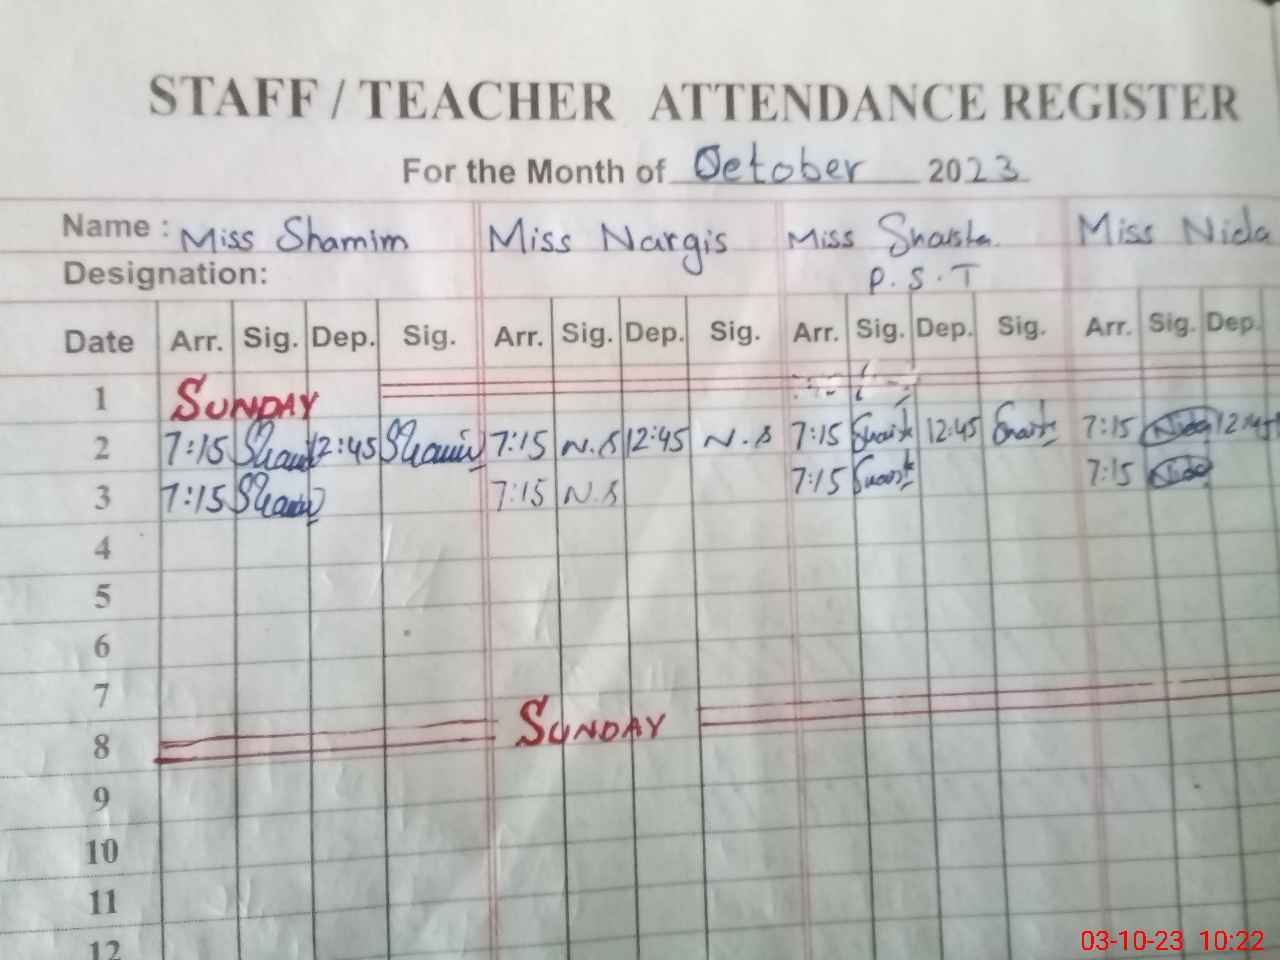 STAFF / TEACHER ATTENDANCE REGISTER
For the Month of October 2023
Name : Miss Shamim Miss Nargis Miss Shaista Miss Nida
Designation: P.S.T
Date Arr. Sig. Dep. Sig. Arr. Sig. Dep. Sig. Arr. Sig. Dep. Sig. Arr. Sig. Dep.
1 SUNDAY
2 7:15 12:45 7:15 N.S 12:45 N.S 7:15 12:45 7:15 Nida 12:45
3 7:15 7:15 N.S 7:15 7:15 Nida
4
5
6
7
8 SUNDAY
9
10
11
12
03-10-23 10:22